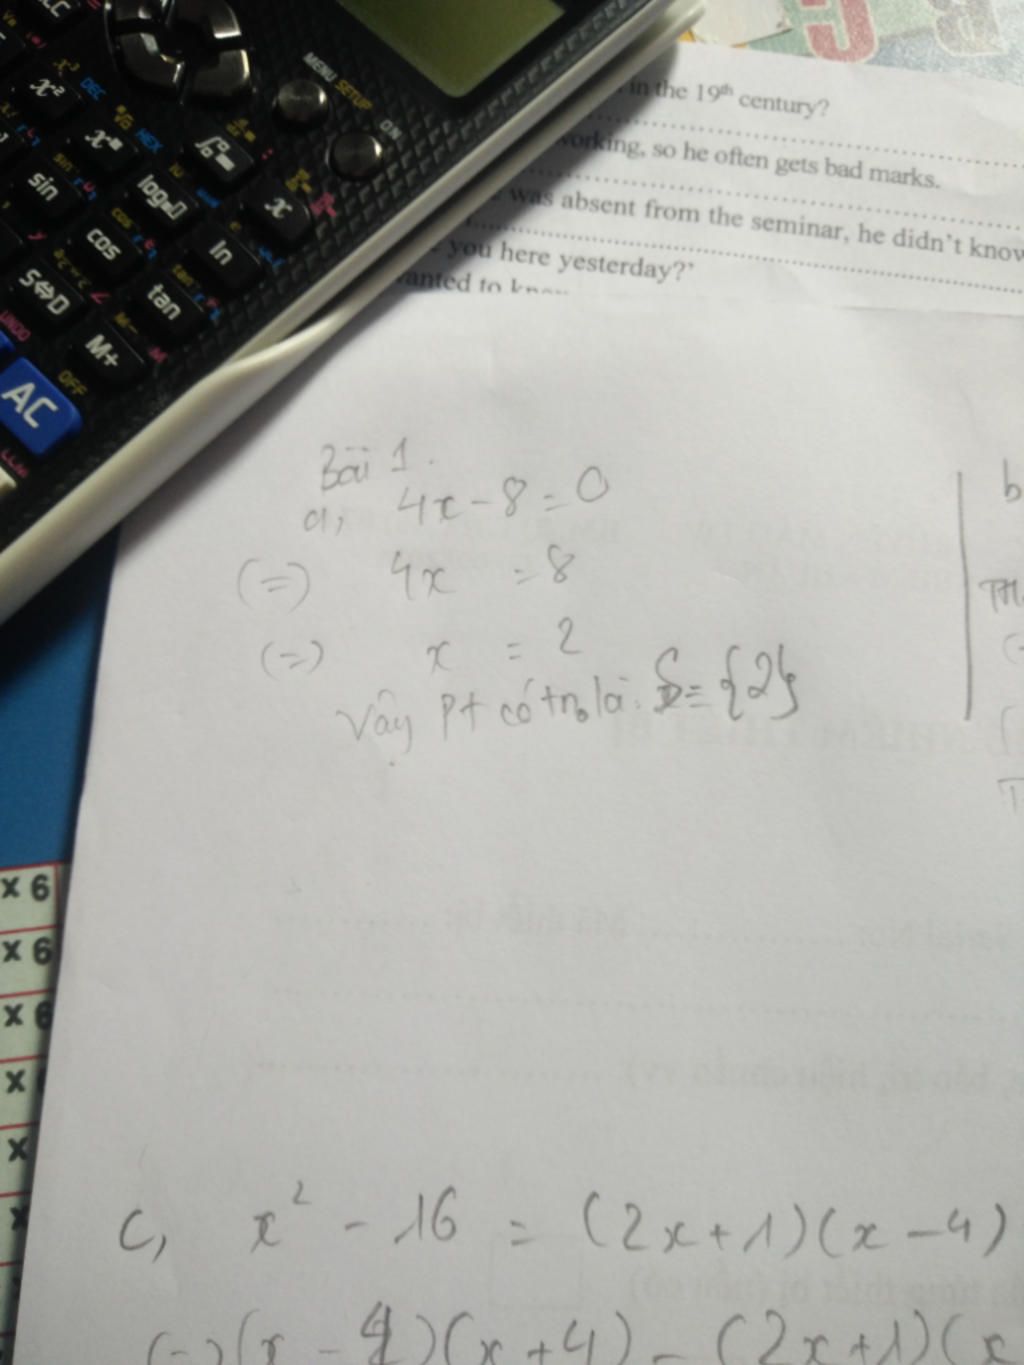 in the 19th century?
working, so he often gets bad marks.
was absent from the seminar, he didn't know
you here yesterday?'
wanted to know
MENU SETUP
ON
x² DEC
HEX
sin
log
x
cos
ln
S⇔D
tan
M+
M-
M
UNDO
AC
OFF
Bài 1.
a, 4x - 8 = 0
(=) 4x = 8
(=) x = 2
Vậy pt có tno là: S = {2}
b
TH
x 6
x 6
x 6
x
x
c, x² - 16 = (2x+1)(x-4)
(=) (x - 4)(x+4) - (2x+1)(x